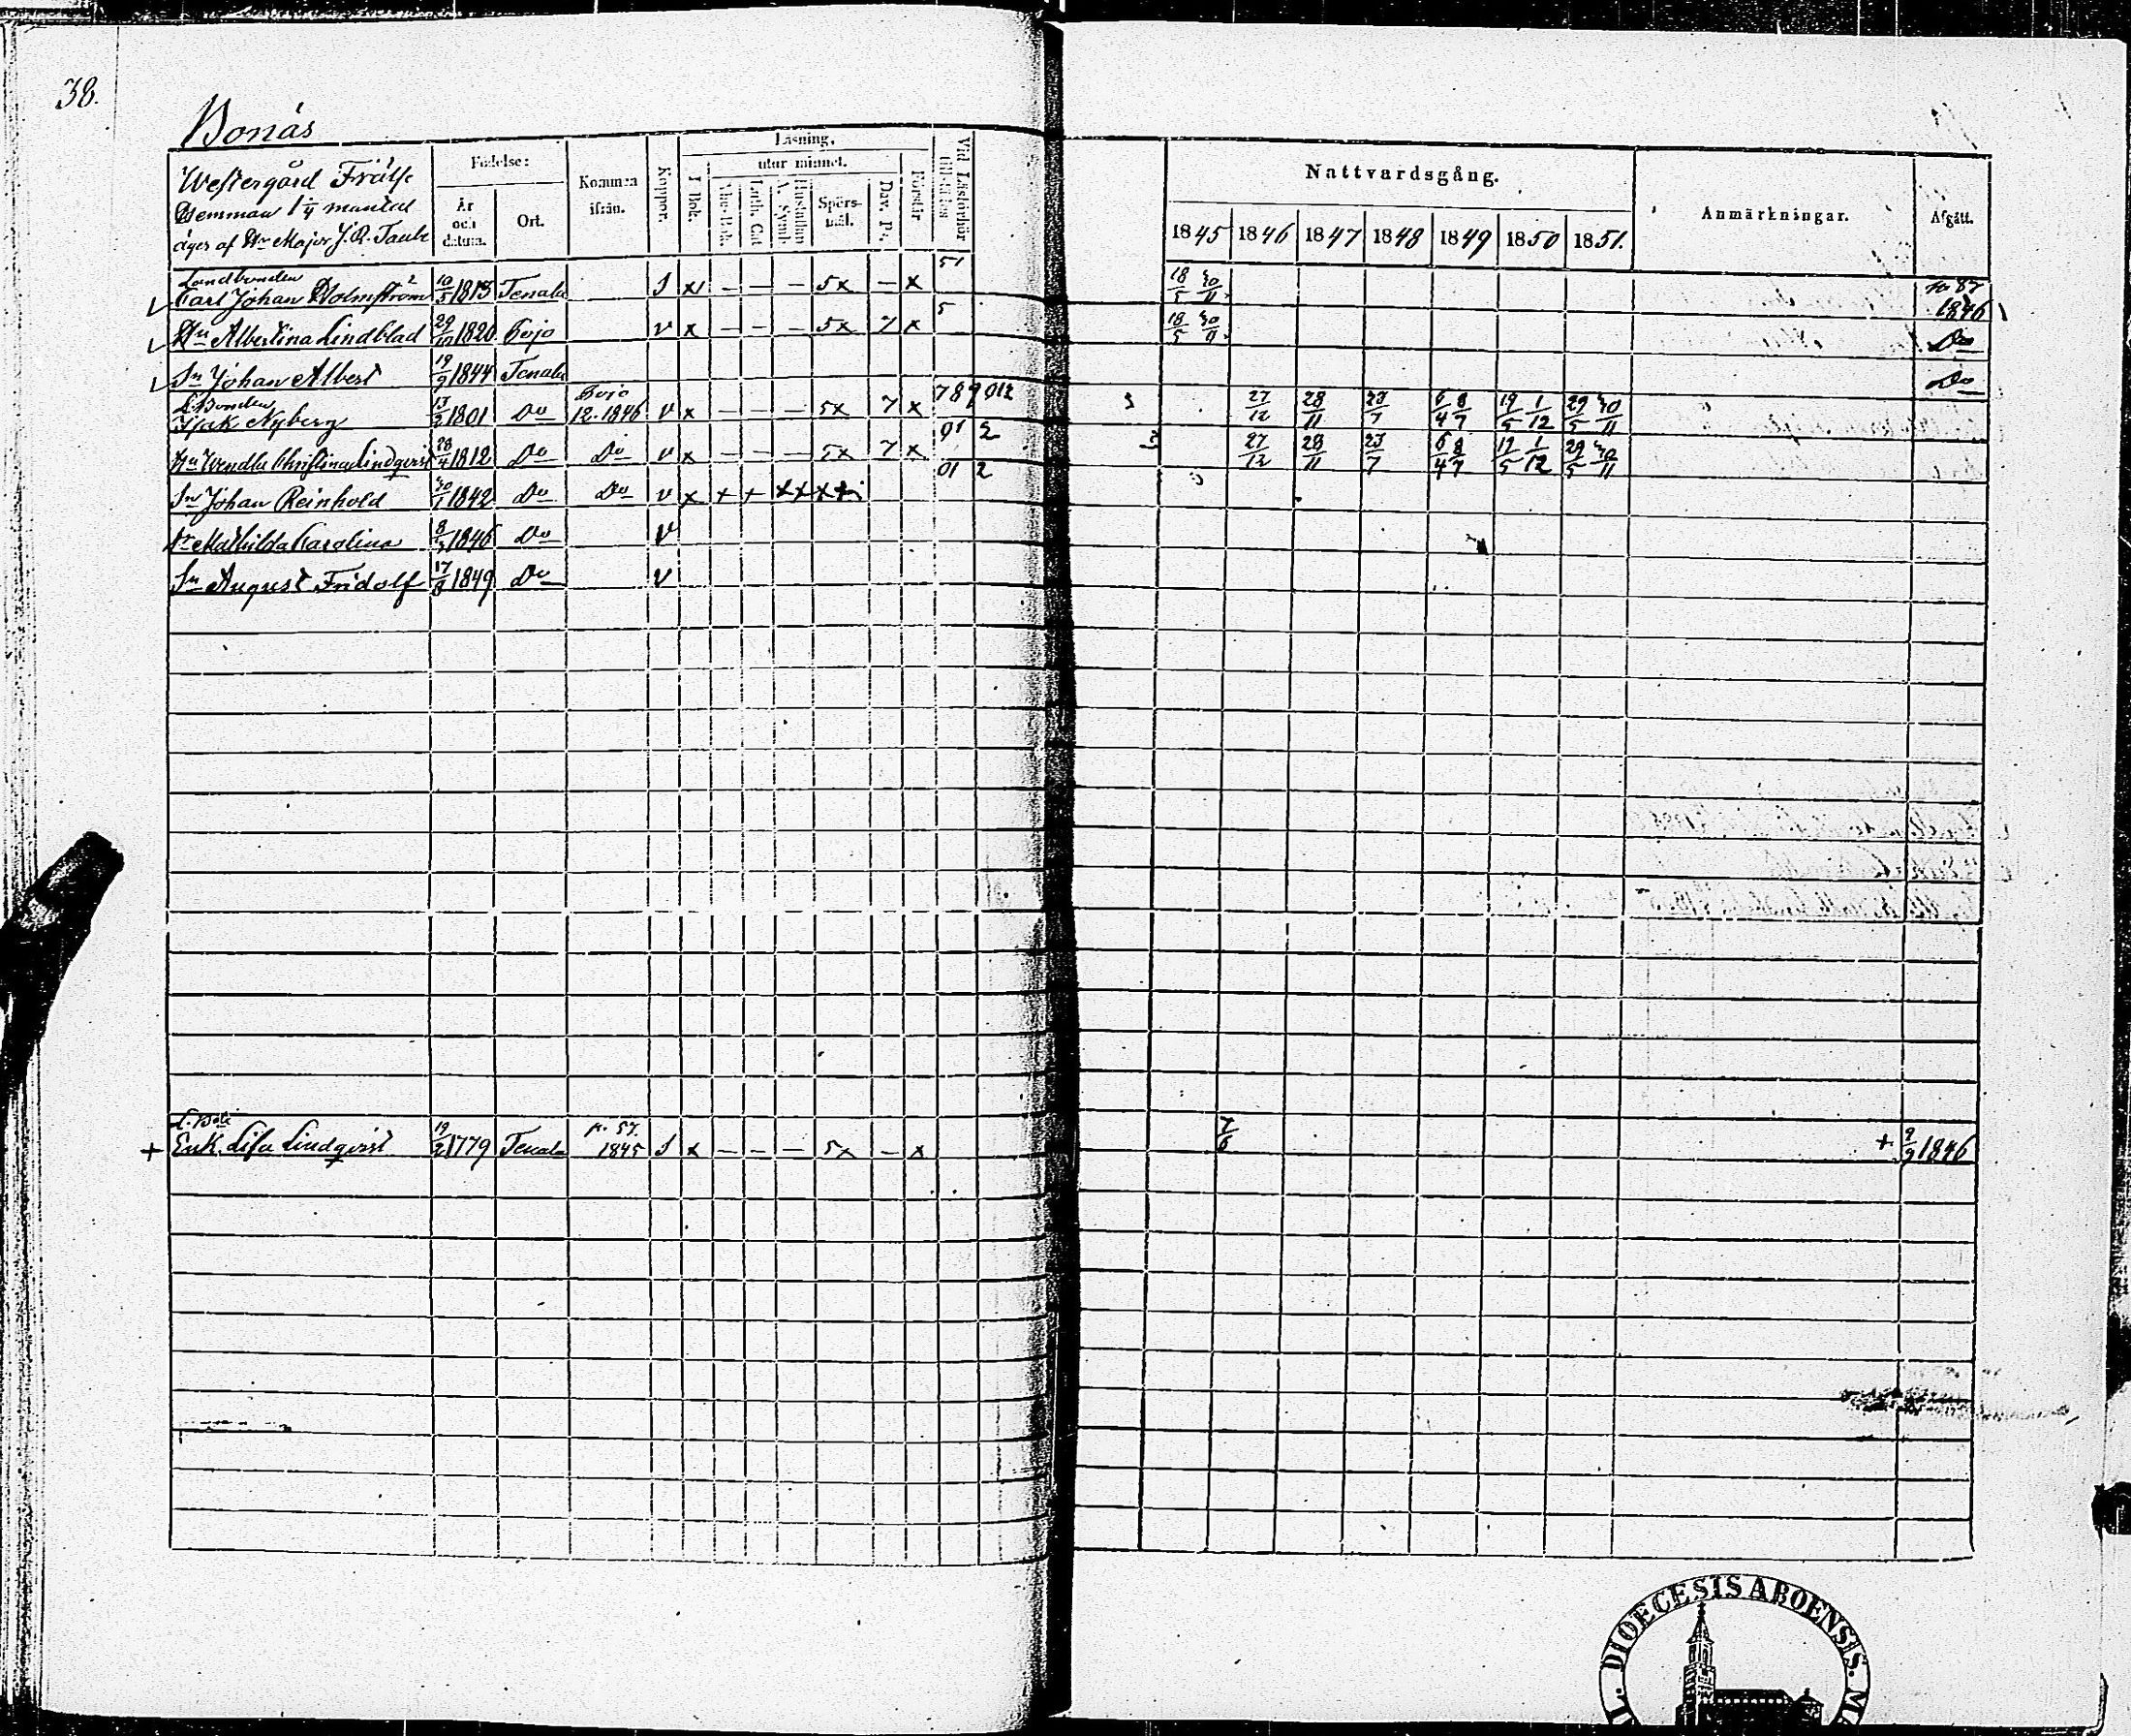 38.
Bonäs
Westergård Frälse
Hemman 1 1/4 mantal
äges af Hr Major J. R. Taube
Födelse:
År och datum.
Ort.
Kommen ifrån.
Koppor.
Läsning.
I Bok.
utur minnet.
Abc-Bok.
Luth. Cat
Hustaflan A. Symb.
Spörsmål.
Dav. Ps.
Förstår
Vid Läsförhör
Nattvardsgång.
1845 1846 1847 1848 1849 1850 1851.
Anmärkningar.
Afgått.
Landbonden 51
Carl Johan Holmström 10/5 1815 Tenala S x – – – 5x – x 18/5 30/11 87 1846
Hu Albertina Lindblad 29/10 1820 Pojo v x – – – 5x 7 x 5 18/5 30/11 Do
Sn Johan Albert 19/9 1844 Tenala Do
L.Bonden Pojo
Isak Nyberg 13/2 1801 Do 12. 1846 v x – – – 5x 7 x 789012 27/12 28/11 23/7 6/4 8/7 19/5 1/12 29/5 30/11
Hu Wendla Christina Lindqvist 28/4 1812 Do Do v x – – – 5x 7 x 01 2 27/12 28/11 23/7 6/4 8/7 19/5 1/12 29/5 30/11
Sn Johan Reinhold 30/1 1842 Do Do v x + + 01 2
Dr Mathilda Carolina 8/3 1846 Do v
Sn August Fridolf 17/8 1849 Do v
+ Enk. Lisa Lindqvist 19/2 1779 Tenala p. 57. 1845 S x – – – 5x – x 7/6 + 2/9 1846
DIOECESIS ABOENSIS.